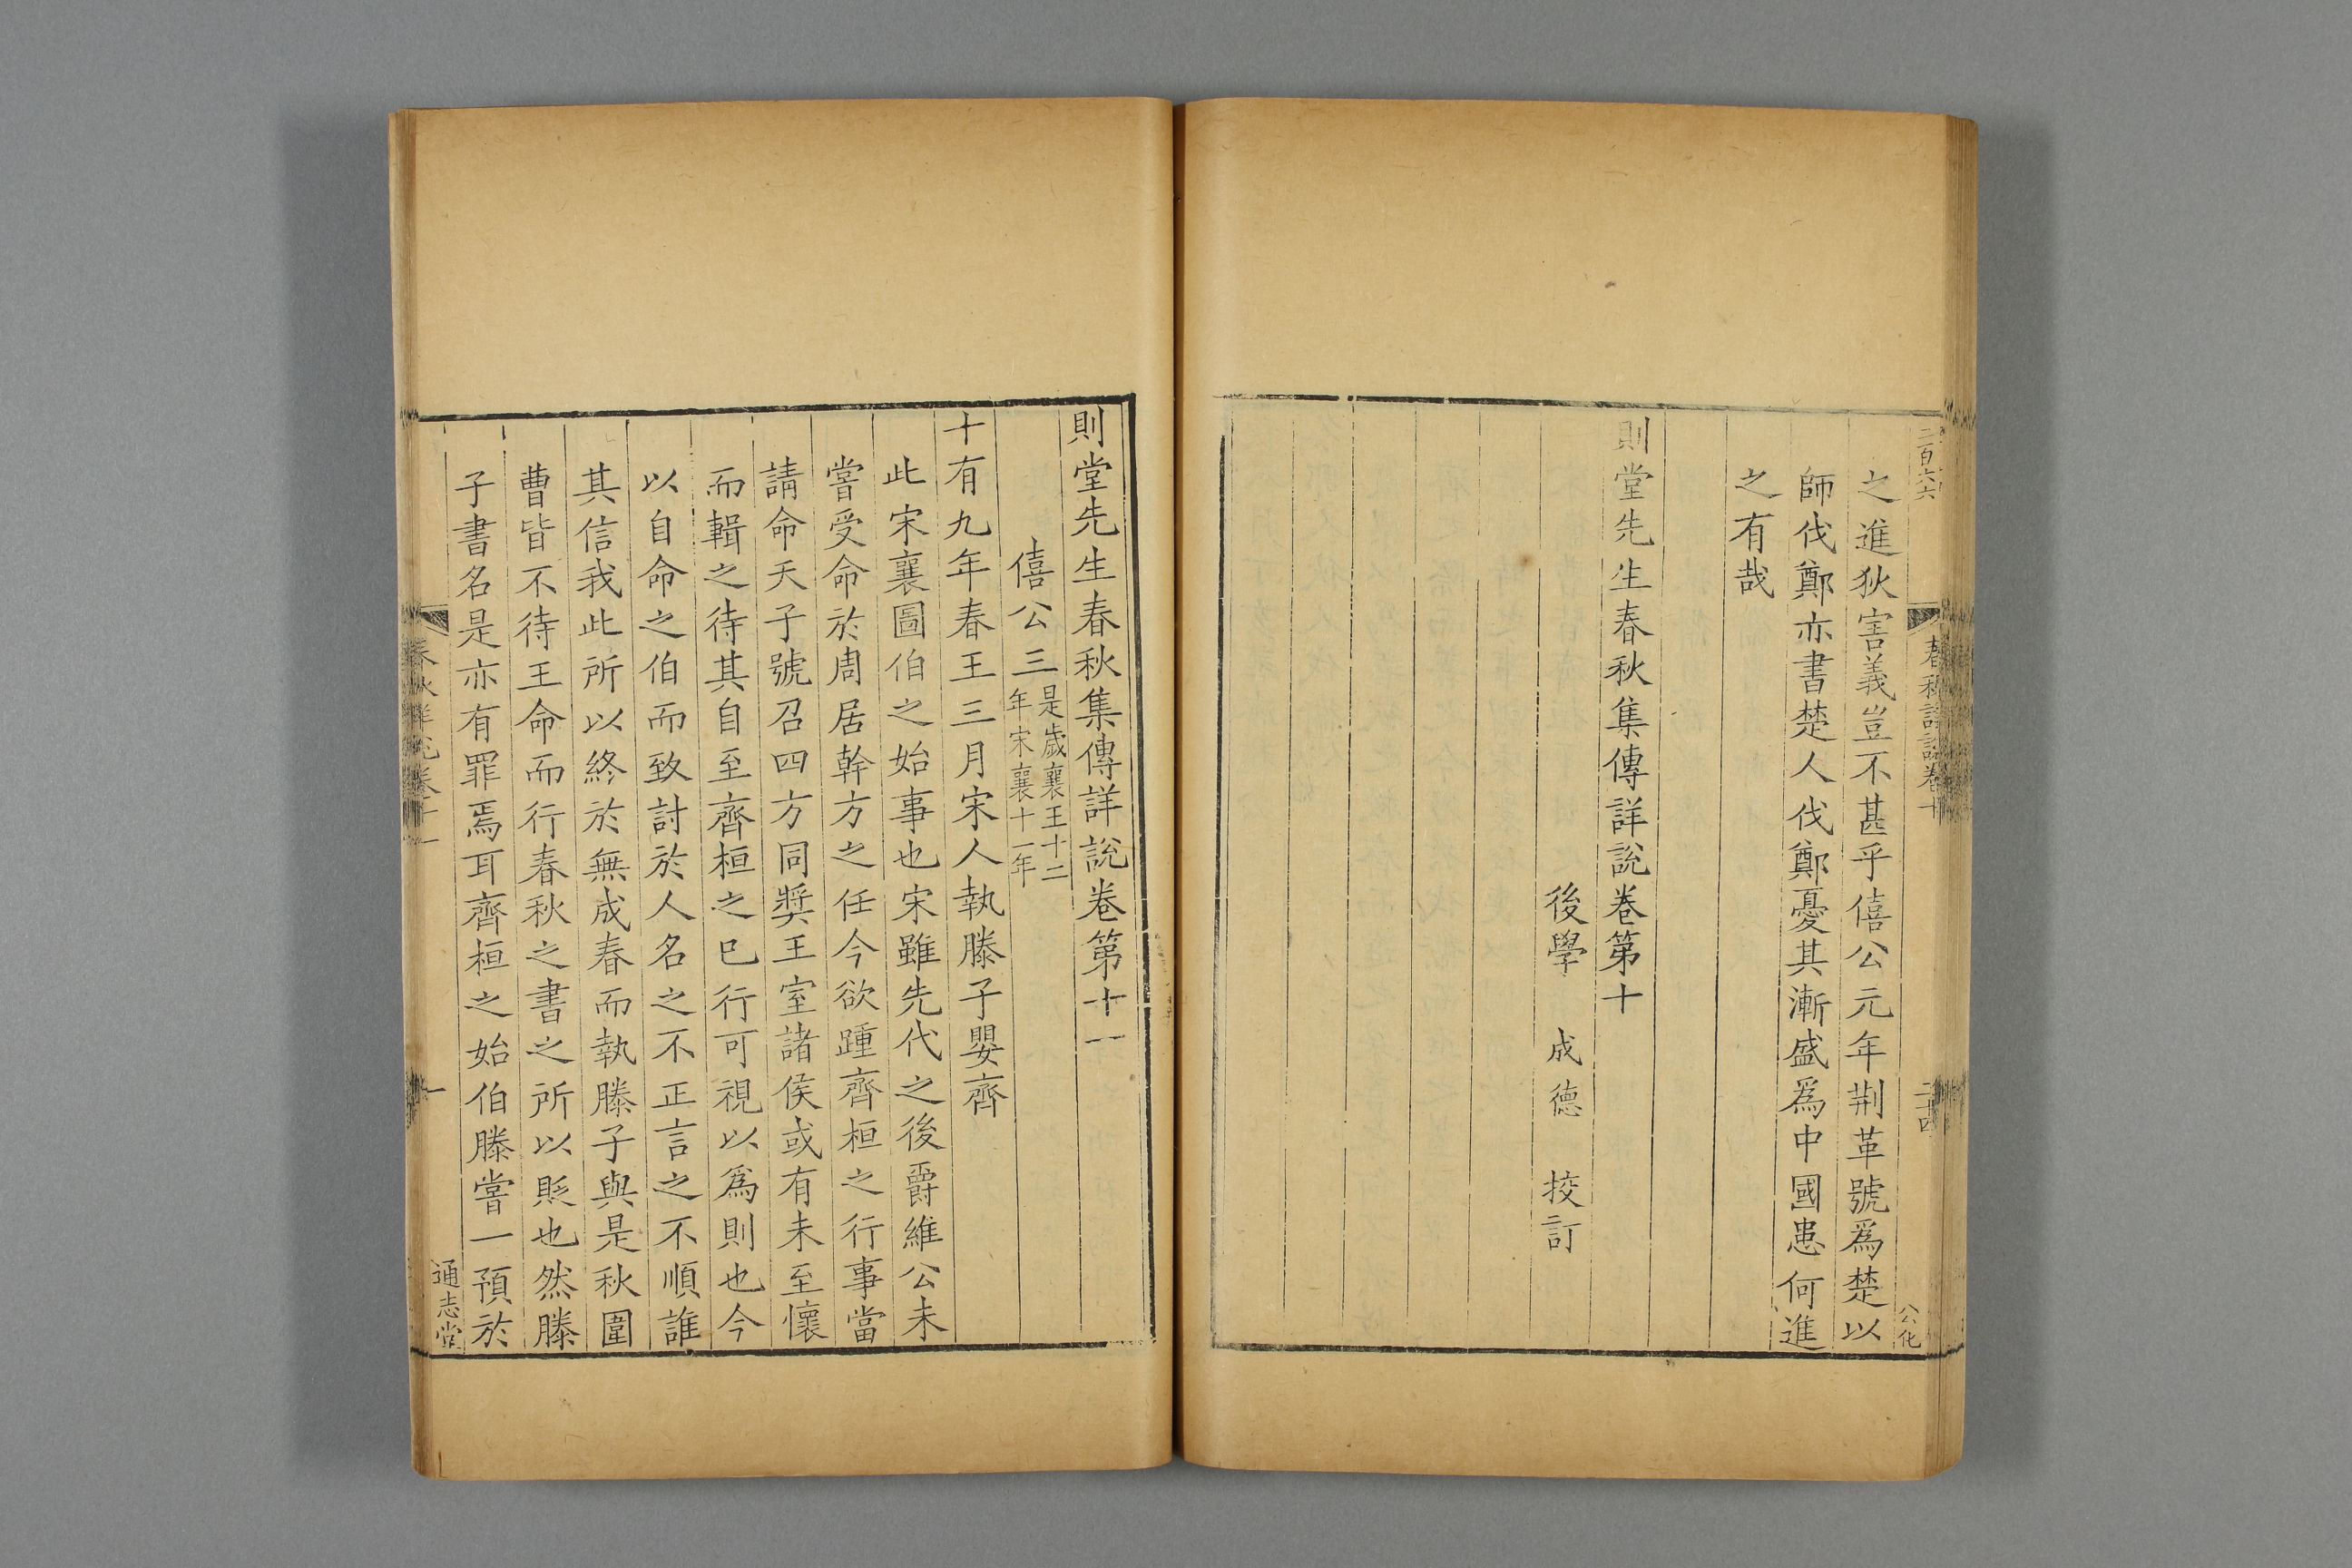 二百六六
春秋詳說卷十
二十四
公化
之進狄害義豈不甚乎僖公元年荆革號爲楚以
師伐鄭亦書楚人伐鄭憂其漸盛爲中國患何進
之有哉
則堂先生春秋集傳詳說卷第十
後學 成德 挍訂
則堂先生春秋集傳詳說卷第十一
僖公三
是歲襄王十二
年宋襄十一年
十有九年春王三月宋人執滕子嬰齊
此宋襄圖伯之始事也宋雖先代之後爵維公未
嘗受命於周居幹方之任今欲踵齊桓之行事當
請命天子號召四方同奬王室諸侯或有未至懷
而輯之待其自至齊桓之已行可視以爲則也今
以自命之伯而致討於人名之不正言之不順誰
其信我此所以終於無成春而執滕子與是秋圍
曹皆不待王命而行春秋之書之所以貶也然滕
子書名是亦有罪焉耳齊桓之始伯滕嘗一預於
春秋詳說卷十一
一
通志堂